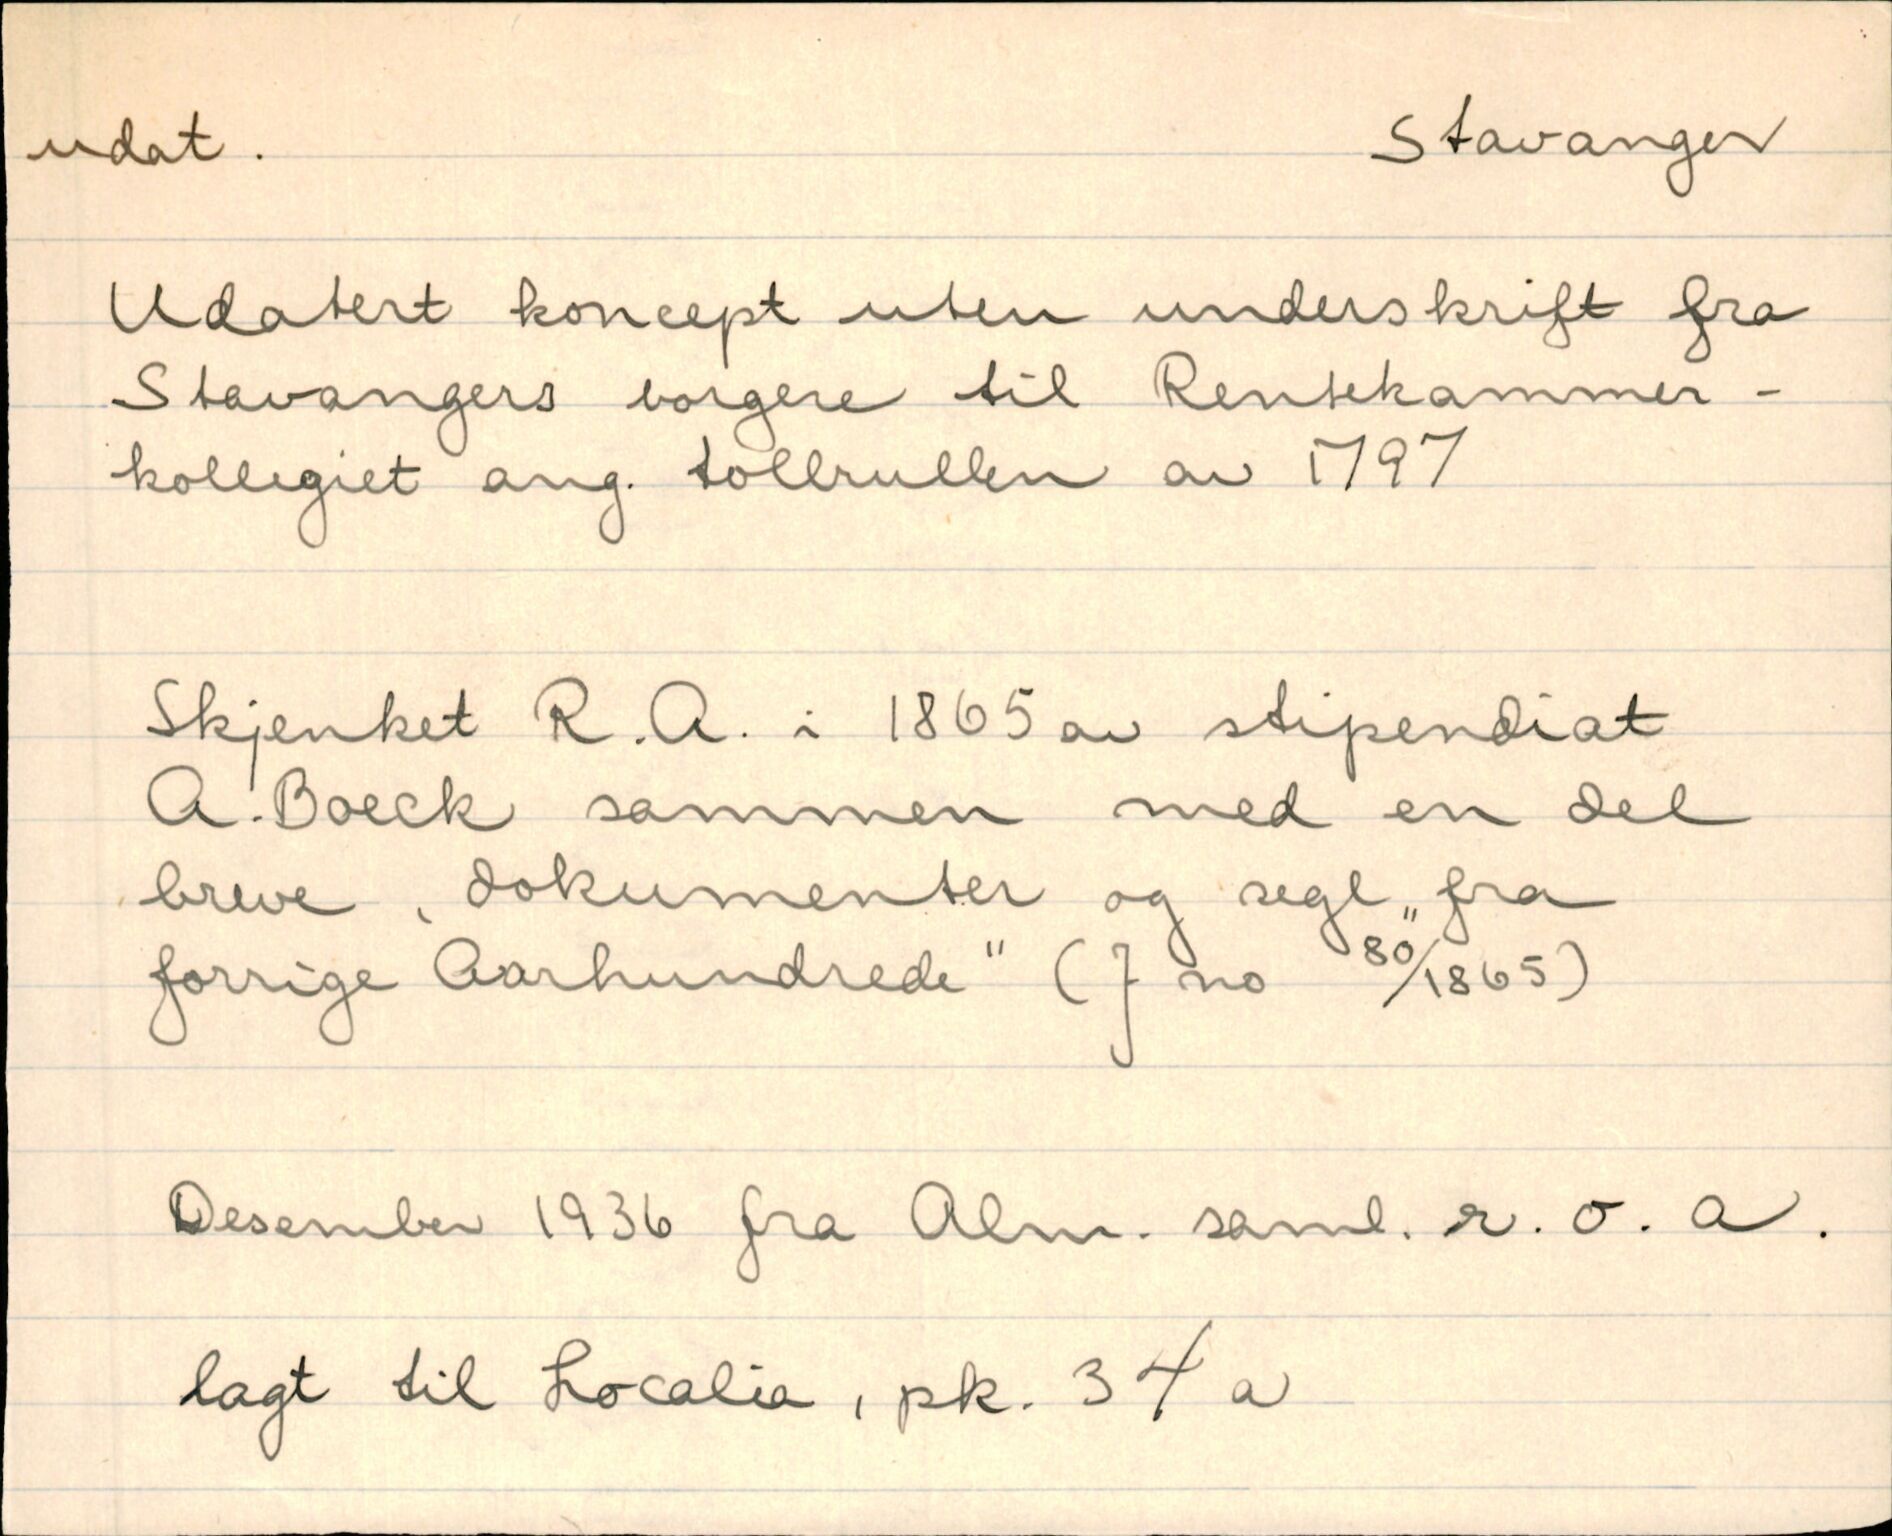 udat. Stavanger
Udatert koncept uten underskrift fra
Stavangers borgere til Rentekammer-
kollegiet ang. tollrullen av 1797
Skjenket R.A. i 1865 av stipendiat
A. Boeck sammen med en del
breve, dokumenter og segl „fra
forrige Aarhundrede" (J no 80/1865)
Desember 1936 fra Alm. saml. r. o. a.
lagt til Localia, pk. 34 a